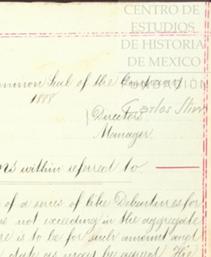 CENTRO DE
ESTUDIOS
DE HISTORIA
DE MEXICO
FUNDACIÓN
Common Seal of the Company
1888
Directors
Manager
within referred to
of a series of like Debentures for
not exceeding in the aggregate
is to be for such amount and
date as may be agreed. The